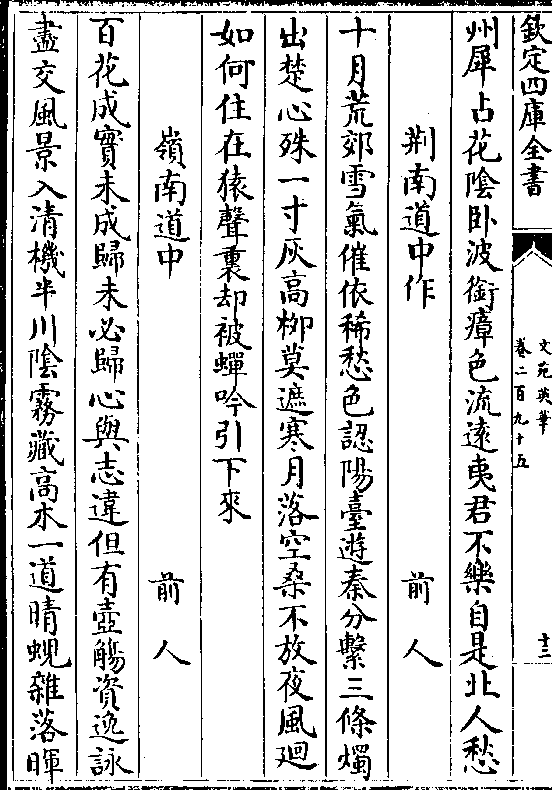 欽定四庫全書
文苑英華
卷二百九十五
十三
州犀占花陰卧波銜瘴色流遠夷君不樂自是北人愁
荆南道中作
前人
十月荒郊雪氣催依稀愁色認陽臺遊秦分繫三條燭
出楚心殊一寸灰高柳莫遮寒月落空桑不放夜風廻
如何住在猿聲裏却被蟬吟引下來
嶺南道中
前人
百花成實未成歸未必歸心與志違但有壺觴資逸詠
盡交風景入清機半川陰霧藏高木一道晴蜺雜落暉